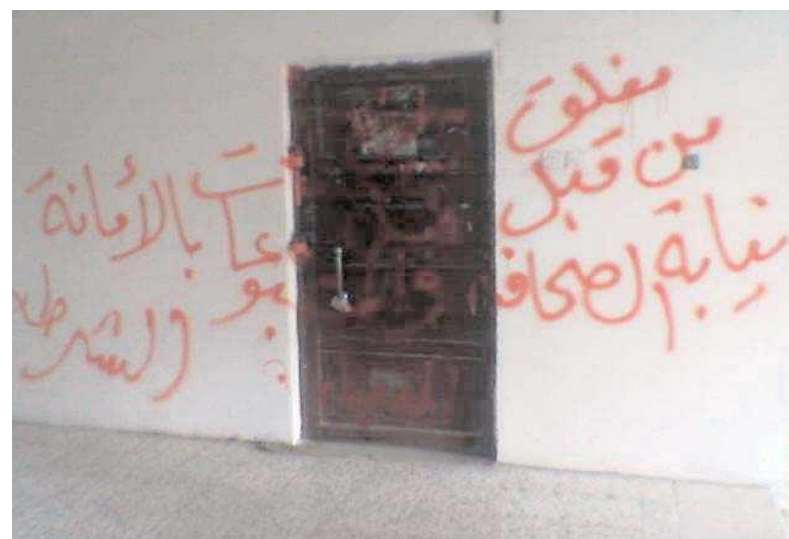 مغلق
من قبل
نيابة الصحافة والمطبوعات بالأمانة
والشرطة